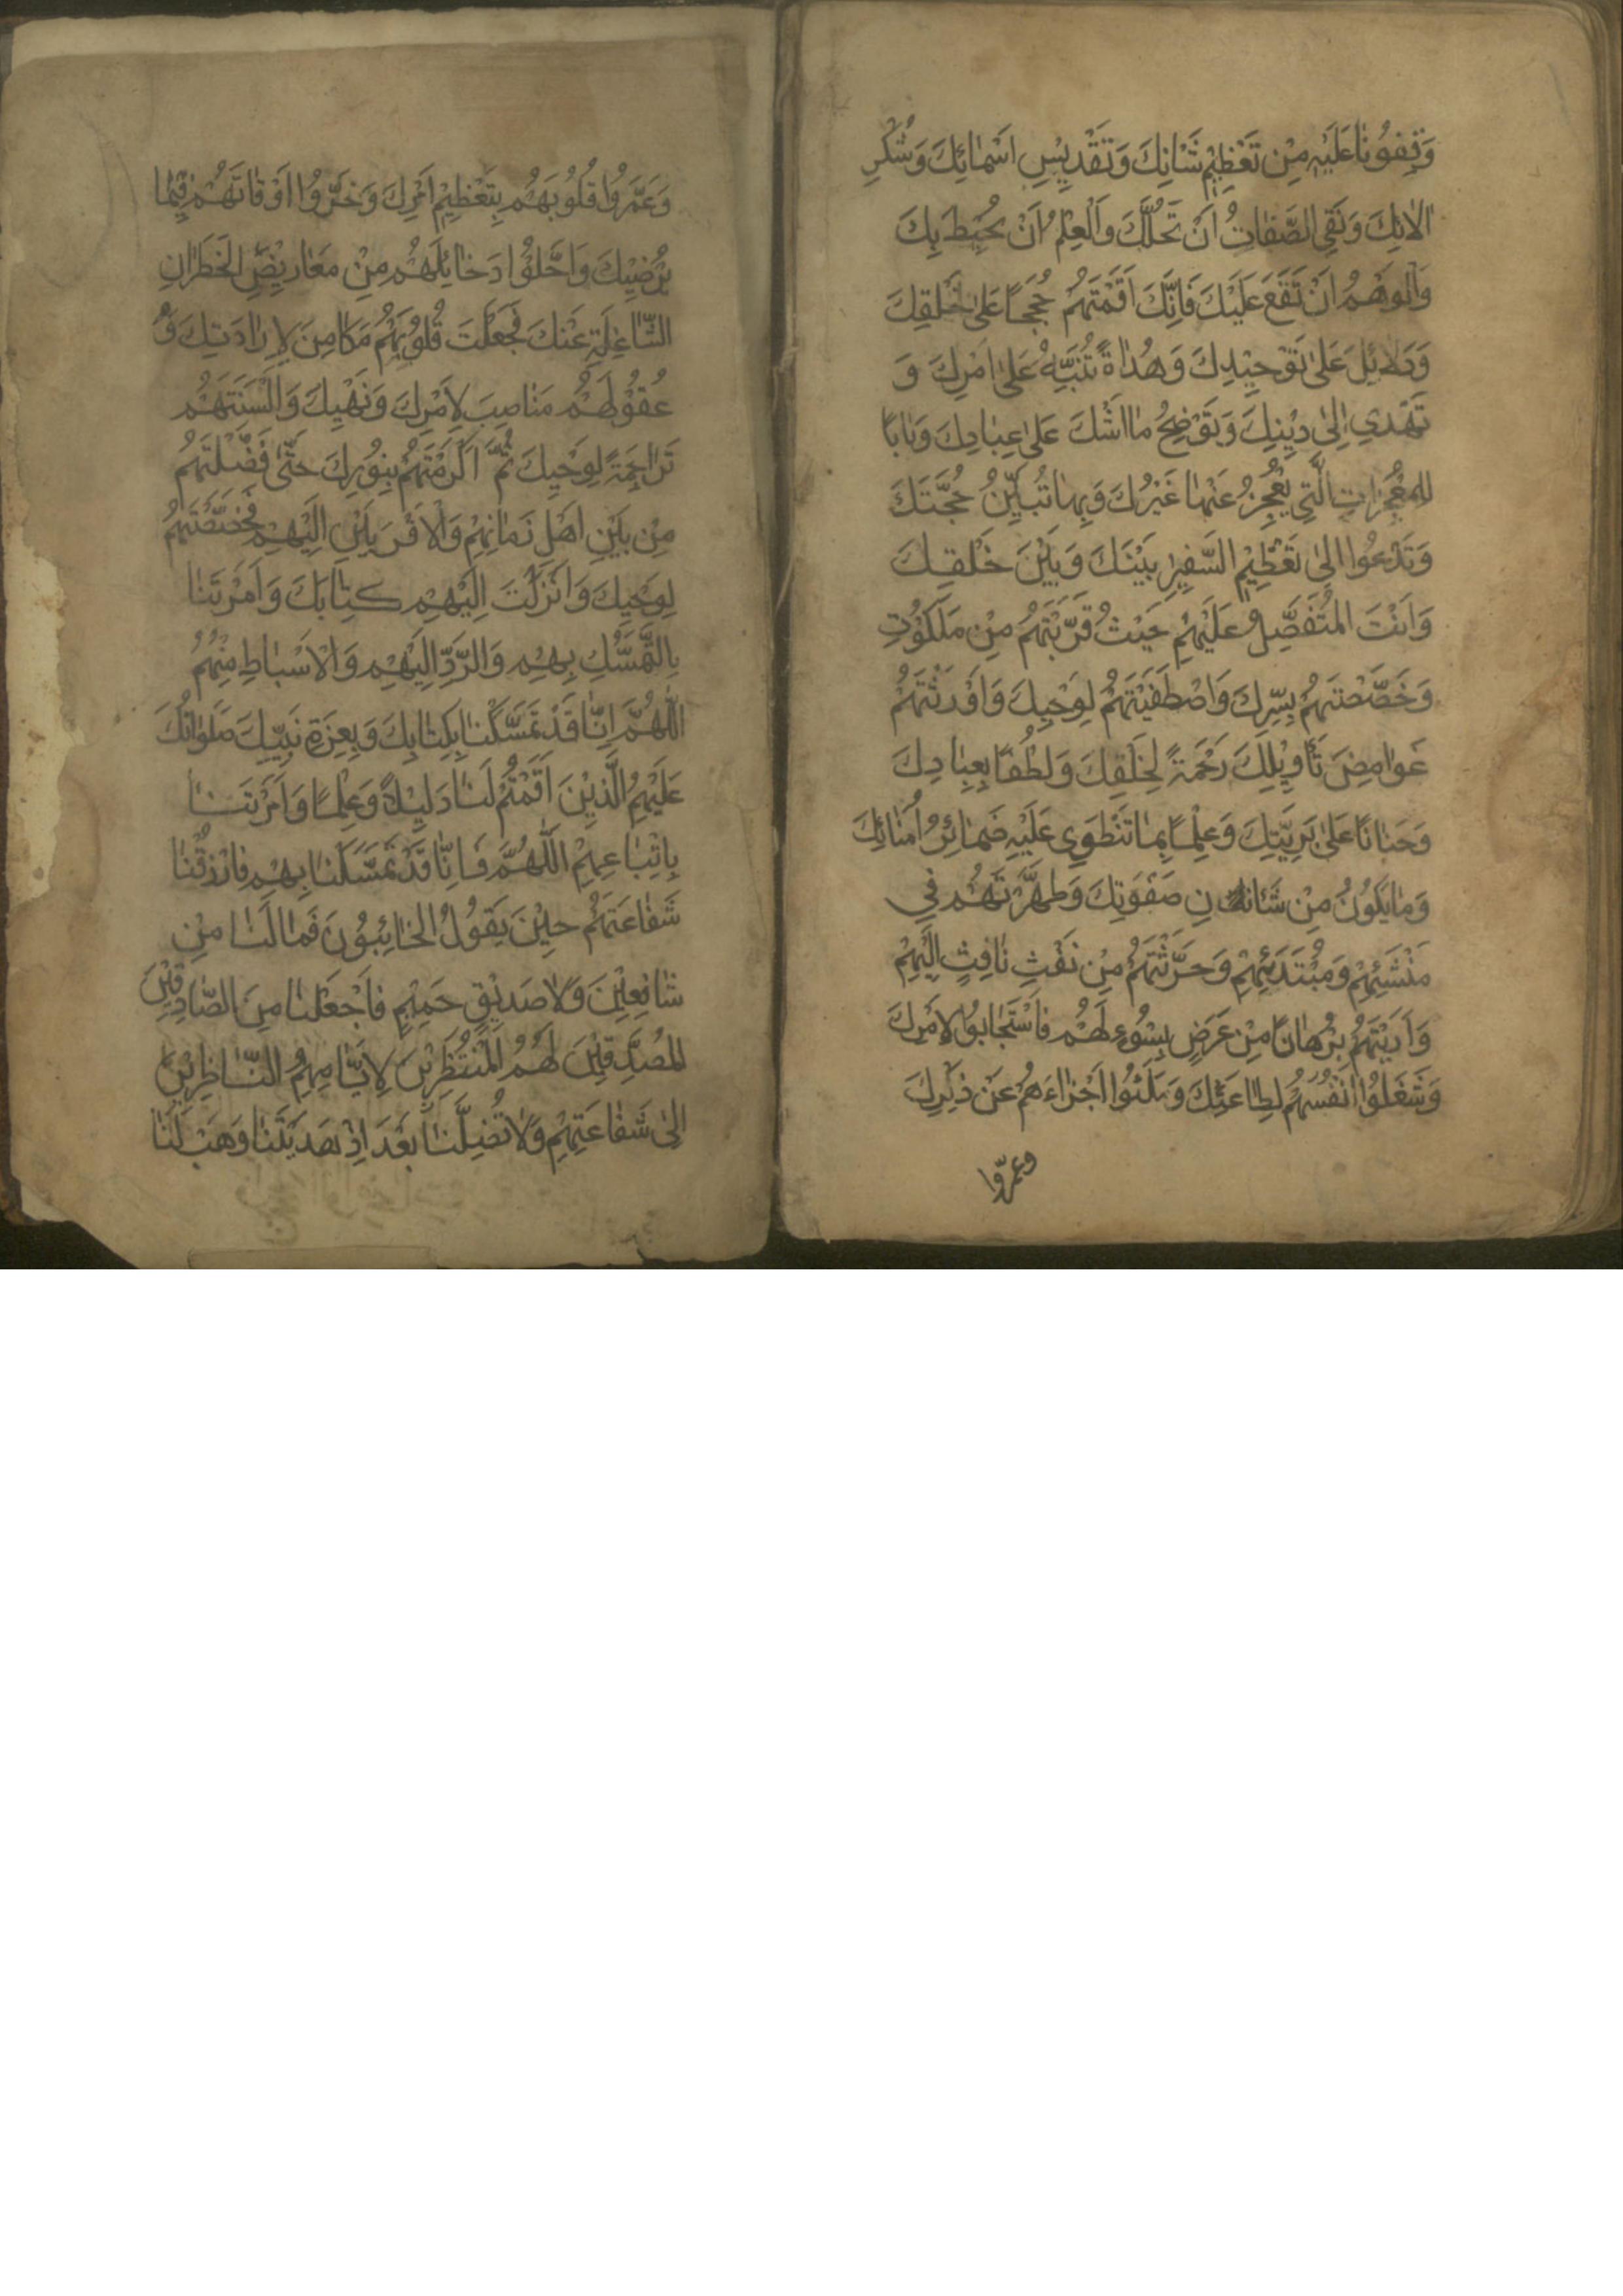 وَقِفُونَا عَلَيْهِ مِنْ تَعْظِيْمِ شَانِكَ وَتَقْدِيْسِ اَسْمَائِكَ وَشُكْرِ
الَائِكَ وَنَفْيِ الصِّفَاتِ اَنْ تَحُلَّكَ وَالْعِلْمِ اَنْ يُحِيْطَ بِكَ
وَالْوَهْمِ اَنْ تَقَعَ عَلَيْكَ فَاِنَّكَ اَقَمْتَهُمْ حُجَجًا عَلَىٰ خَلْقِكَ
وَدَلَائِلَ عَلَىٰ تَوْحِيْدِكَ وَهُدَاةً تُنَبِّهُ عَلَىٰ اَمْرِكَ وَ
تَهْدِي اِلَىٰ دِيْنِكَ وَتَوْضِحُ مَا اَشْكَ عَلَىٰ عِبَادِكَ وَبَابًا
لِلْمُعْجِزَاتِ الَّتِي يَعْجِزُ عَنْهَا غَيْرُكَ وَبِهَا تُبَيِّنُ حُجَّتَكَ
وَتَدْعُوا اِلىٰ تَعْظِيْمِ السَّفِيرِ بَيْنَكَ وَبَيْنَ خَلْقِكَ
وَاَنْتَ الْمُتَفَضِّلُ عَلَيْهِمْ حَيْثُ قَرَّبْتَهُمْ مِنْ مَلَكُوْتِ
وَخَصَّصْتَهُمْ بِسِّرِكَ وَاصْطَفَيْتَهُمْ لِوَحْيِكَ وَاَوْرَثْتَهُمْ
غَوَامِضَ تَأْوِيْلِكَ رَحْمَةً لِخَلْقِكَ وَلُطْفًا بِعِبَادِكَ
وَحَنَانًا عَلىٰ بَرِيَّتِكَ وَعِلْمًا بِمَا تَنْطَوِي عَلَيْهِ ضَمَائِرُ اُمَنَائِكَ
وَمَايَكُوْنُ مِنْ شَانِ صَفْوَتِكَ وَطَهَّرْتَهُمْ فِي
مَنْشَئِهِمْ وَمُبْتَدَئِهِمْ وَحَرَّثْتَهُمْ مِنْ نَفْثِ نَافِثٍ اِلَيْهِمْ
وَاَرَيْتَهُمْ بُرْهَانًا مِنْ عَرَضٍ بِسُوْءٍ لَهُمْ فَاسْتَجَابُوْا لِاَمْرِكَ
وَشَغَلُوْا اَنْفُسَهُمْ لِطَاعَتِكَ وَمَلَئُوا اَجْزَاءَهُمْ عَنْ ذِكْرِكَ
وعمرّوا
وَعَمَّرُوْا قُلُوْبَهُمْ بِتَعْظِيْمِ اَمْرِكَ وَخَرَّوُا اَوْقَاتَهُمْ فِيْمَا
يُرْضِيْكَ وَاَخَلُوْا دَخَائِلَهُمْ مِنْ مَعَارِيْضِ الْخَطَرَاتِ
الشَّاغِلَةِ عَنْكَ فَجَعَلْتَ قُلُوْبَهُمْ مَكَامِنَ لِاِرَادَتِكَ وَ
عُقُوْلَهُمْ مَنَاصِبَ لِاَمْرِكَ وَنَهْيِكَ وَاَلْسِنَتَهُمْ
تَرَاجِمَةً لِوَحْيِكَ ثُمَّ اَكْرَمْتَهُمْ بِنُوْرِكَ حَتّٰى فَضَّلْتَهُمْ
مِنْ بَيْنِ اَهْلِ زَمَانِهِمْ وَالْاَقْرَبِيْنَ اِلَيْهِمْ فَخَصَّصْتَهُمْ
لِوَحْيِكَ وَاَنْزَلْتَ اِلَيْهِمْ كِتَابَكَ وَاَمَرْتَنَا
بِالتَّمَسُّكِ بِهِمْ وَالرَّدِّ اِلَيْهِمْ وَالْاَسْبَاطِ مِنْهُمْ
اَللّٰهُمَّ اِنَّا قَدْ تَمَسَّكْنَا بِكِتَابِكَ وَبِعِزَةِ نَبِيِّكَ صَلَوَاتُكَ
عَلَيْهِمُ الَّذِيْنَ اَقَمْتَهُمْ لَنَا دَلِيْلًا وَعِلْمًا وَاَمَرْتَنَا
بِاتِّبَاعِهِمْ اَللّٰهُمَّ فَاِنَّا قَدْ تَمَسَّكْنَا بِهِمْ فَارْزُقْنَا
شَفَاعَتَهُمْ حِيْنَ يَقُوْلُ الْخَائِبُوْنَ فَمَالَنَا مِنْ
شَافِعِيْنَ وَلَاصَدِيْقٍ حَمِيْمٍ فَاجْعَلْنَا مِنَ الصَّادِقِيْنَ
الْمُصَدِّقِيْنَ لَهُمُ الْمُنْتَظِرِيْنَ لِاَيَّامِهِمُ النَّاظِرِيْنَ
اِلىٰ شَفَاعَتِهِمْ وَلَاتُضِلَّنَا بَعْدَ اِذْ هَدَيْتَنَا وَهَبْ لَنَا